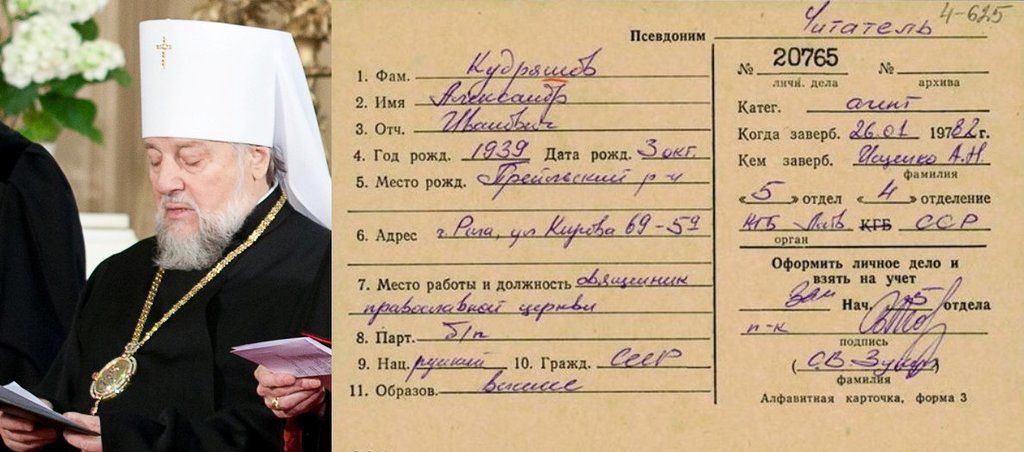 4-625
Псевдоним Читатель
1. Фам. Кудряшов
2. Имя Александр
3. Отч. Иванович
4. Год рожд. 1939 Дата рожд. 3 окт.
5. Место рожд. Прейльский р-н
6. Адрес г. Рига, ул Кирова 69-59
7. Место работы и должность священник
православной церкви
8. Парт. б/п
9. Нац. русский 10. Гражд. СССР
11. Образов. высшее
№ 20765 №
личн. дела архива
Катег. агент
Когда заверб. 26.01 1982 г.
Кем заверб. Ищенко А.Н.
фамилия
«5» отдел «4» отделение
КГБ Латв КГБ ССР
орган
Оформить личное дело и
взять на учет
Зам Нач. 5 отдела
п-к
подпись
(С.В. )
фамилия
Алфавитная карточка, форма 3